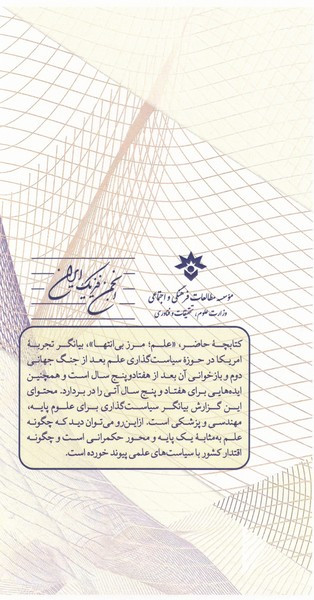 انجمن فیزیک ایران
مؤسسه مطالعات فرهنگی و اجتماعی
وزارت علوم، تحقیقات و فناوری
کتابچهٔ حاضر، «علم؛ مرز بی‌انتها»، بیانگر تجربهٔ
امریکا در حوزهٔ سیاست‌گذاری علم بعد از جنگ جهانی
دوم و بازخوانی آن بعد از هفتادوپنج سال است و همچنین
ایده‌هایی برای هفتاد و پنج سال آتی را در بردارد. محتوای
این گزارش بیانگر سیاست‌گذاری برای علوم پایه،
مهندسی و پزشکی است. ازاین‌رو می‌توان دید که چگونه
علم به‌مثابهٔ یک پایه و محور حکمرانی است و چگونه
اقتدار کشور با سیاست‌های علمی پیوند خورده است.